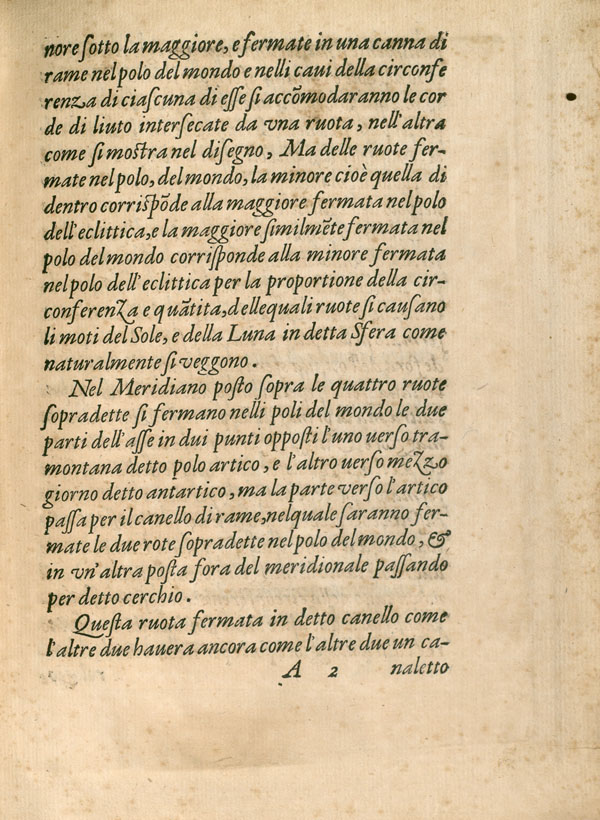 nore ſotto la maggiore, e fermate in una canna di
rame nel polo del mondo e nelli caui della circonfe
renza di ciaſcuna di eſſe ſi accõmodaranno le cor
de di liuto interſecate da vna ruota, nell'altra
come ſi moſtra nel diſegno, Ma delle ruote fer-
mate nel polo, del mondo, la minore cioè quella di
dentro corriſpõde alla maggiore fermata nel polo
dell'eclittica, e la maggiore ſimilmẽte fermata nel
polo del mondo corriſponde alla minore fermata
nel polo dell'eclittica per la proportione della cir-
conferenza e quãtita, delle quali ruote ſi cauſano
li moti del Sole, e della Luna in detta Sfera come
naturalmente ſi veggono.
Nel Meridiano poſto ſopra le quattro ruote
ſopradette ſi fermano nelli poli del mondo le due
parti dell'aſſe in dui punti oppoſti l'uno uerſo tra-
montana detto polo artico, e l'altro uerſo mezzo
giorno detto antartico, ma la parte verſo l'artico
paſſa per il canello di rame, nel quale ſaranno fer-
mate le due rote ſopradette nel polo del mondo, &
in vn'altra poſta fora del meridionale paſſando
per detto cerchio.
Queſta ruota fermata in detto canello come
l'altre due hauera ancora come l'altre due un ca-
A 2 naletto